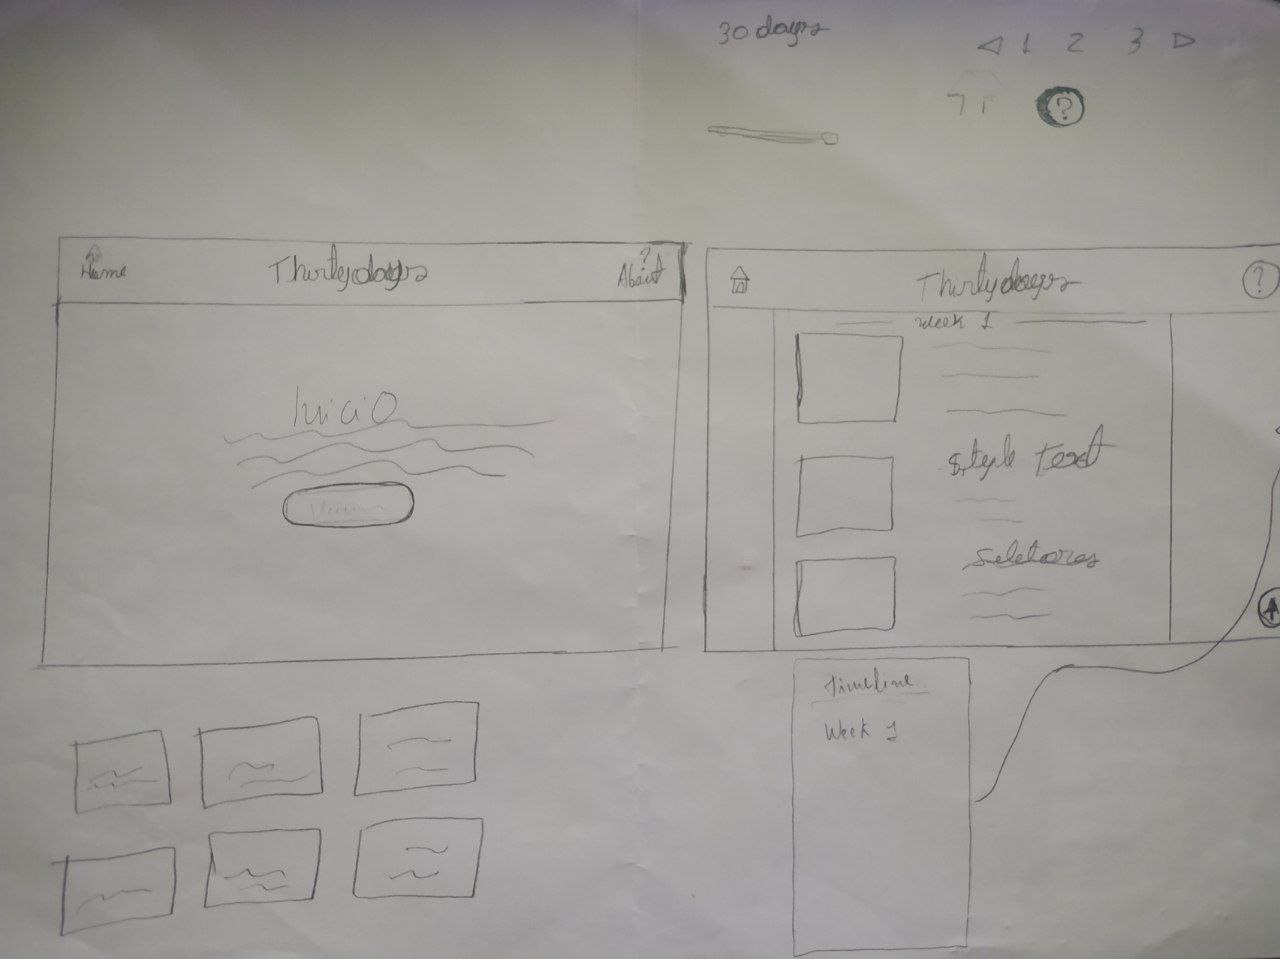 30 days
1 2 3
?
Home
Thirtydays
?
About
Inicio
Thirtydays
?
Week 1
Style text
Seletores
Timeline
Week 1